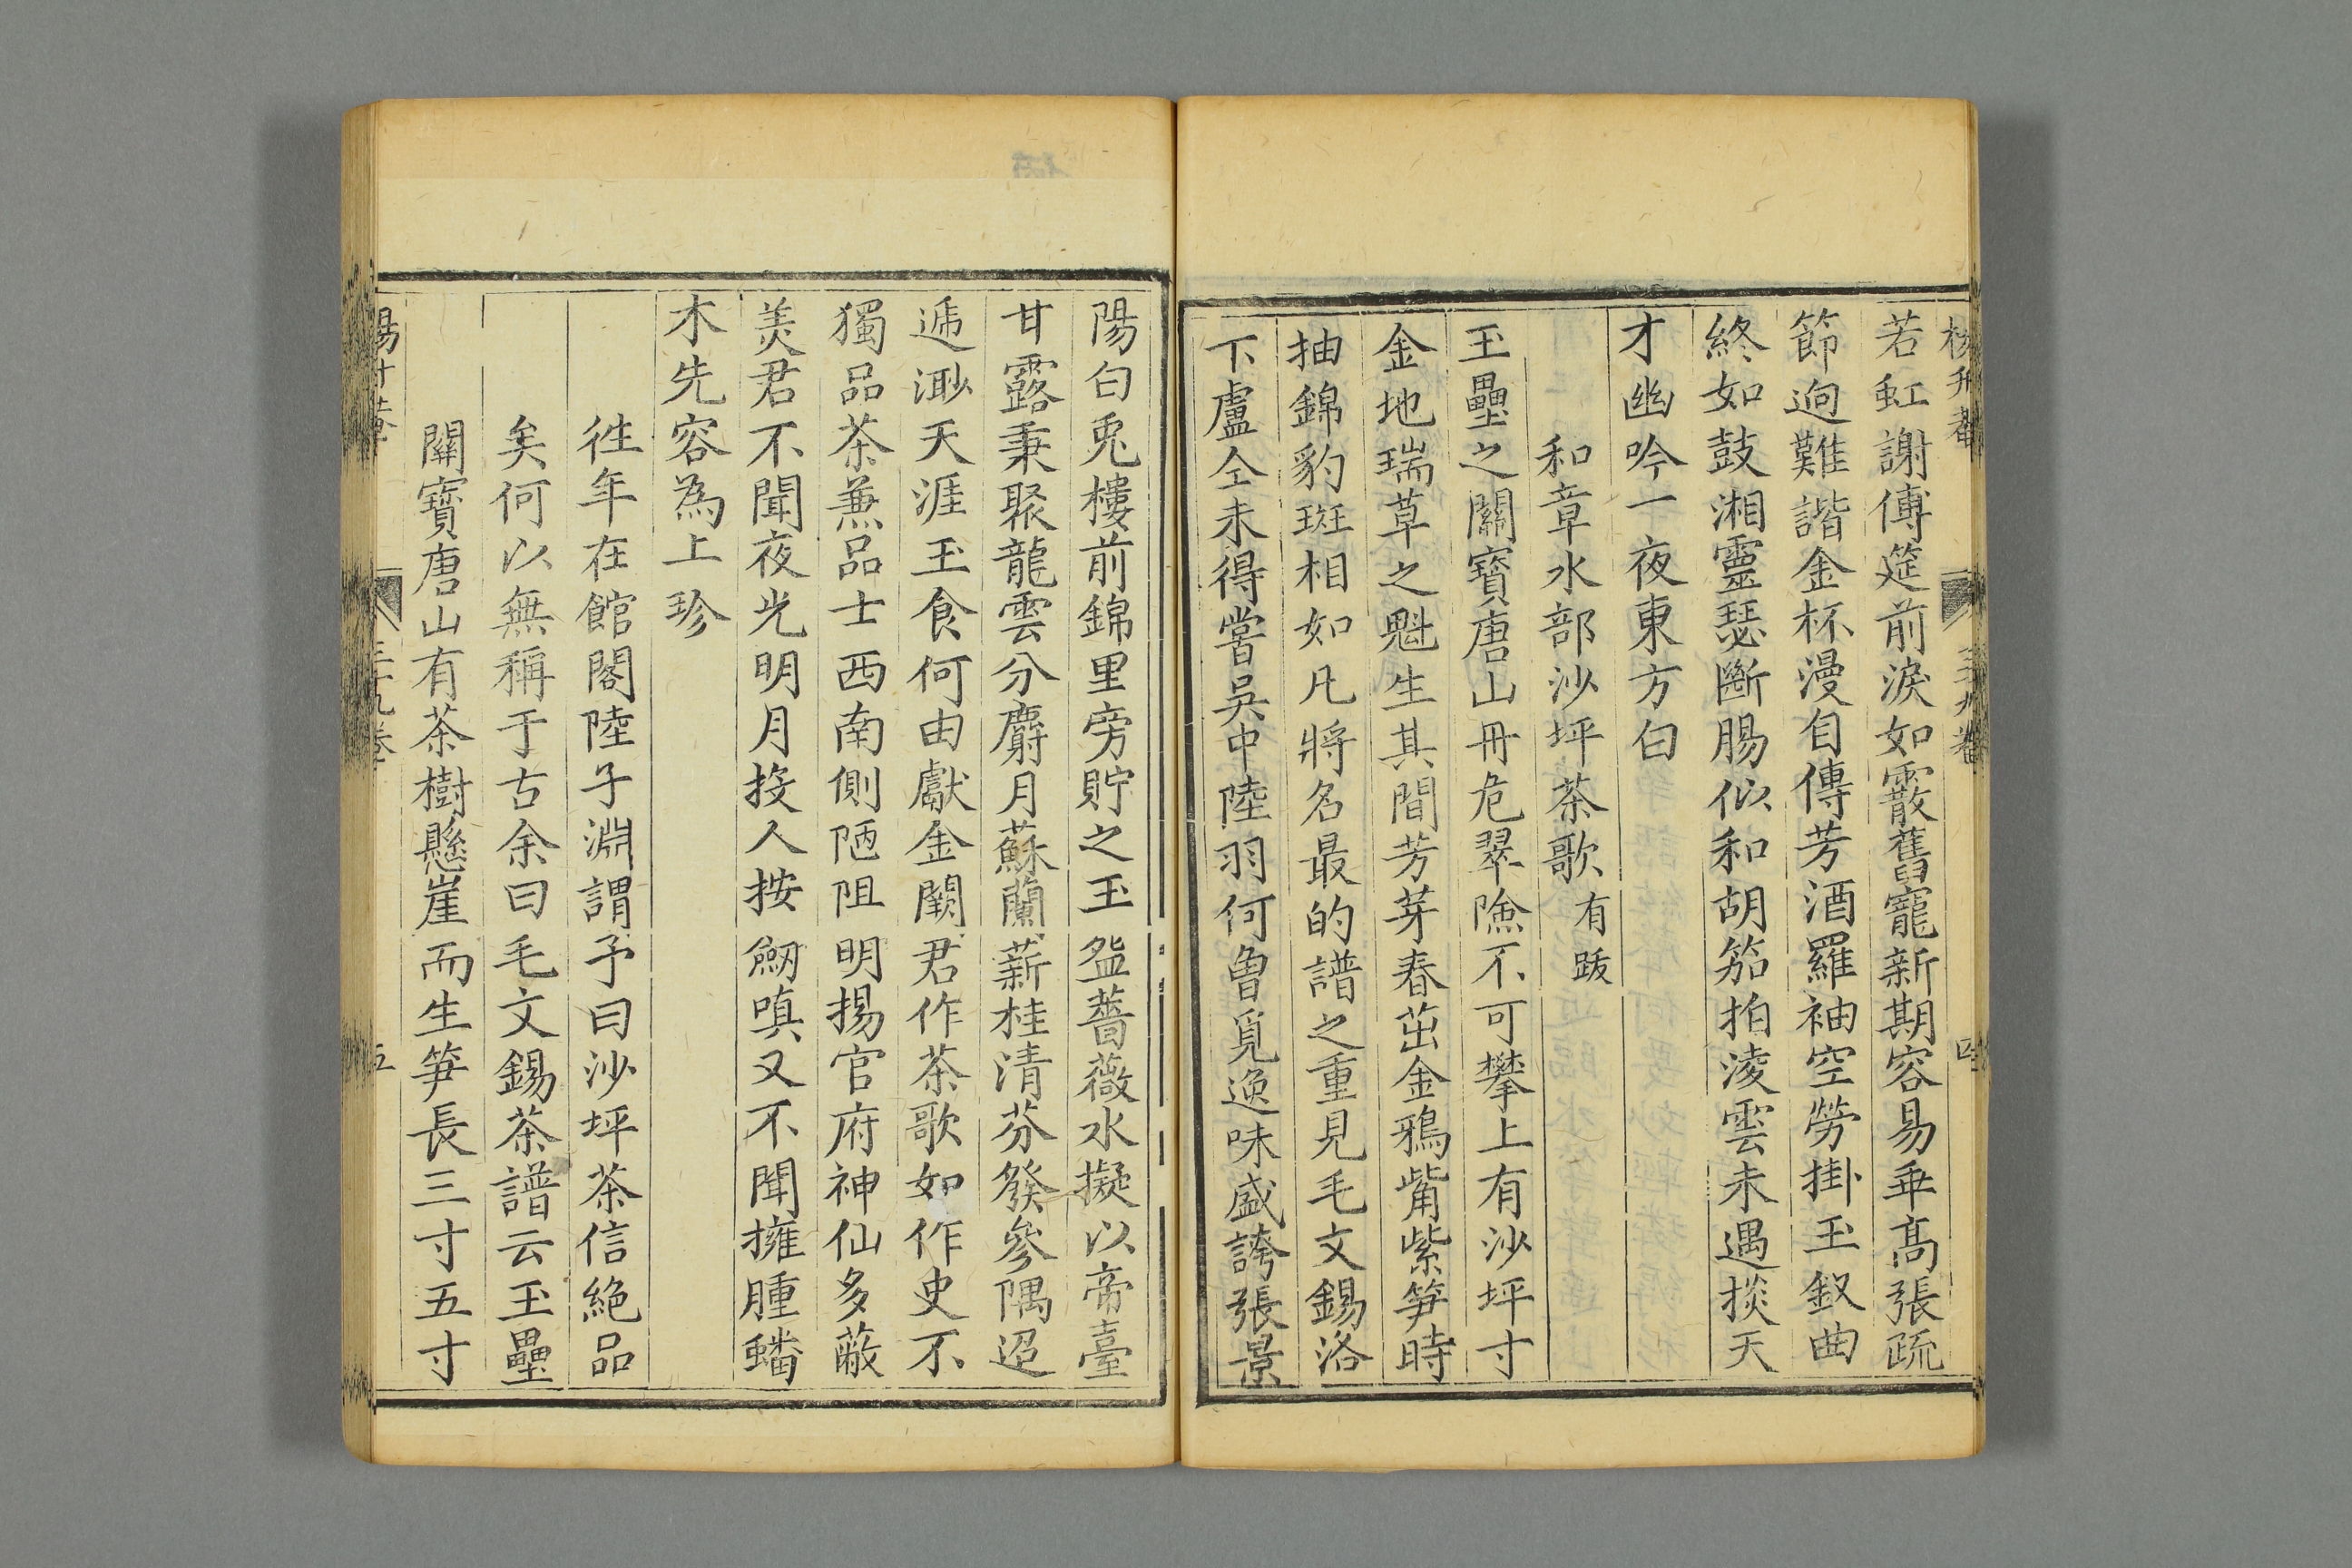 若虹謝傅筵前淚如霰舊寵新期容易乖高張疏
節逈難諧金杯漫自傳芳酒羅袖空勞掛玉釵曲
終如鼓湘靈瑟斷腸似和胡笳拍淩雲未遇掞天
才幽吟一夜東方白
和章水部沙坪茶歌有跋
玉壘之關寶唐山冊危翠險不可攀上有沙坪寸
金地瑞草之魁生其間芳芽春茁金鴉觜紫筍時
抽錦豹斑相如凡將名最的譜之重見毛文錫洛
下盧仝未得嘗吳中陸羽何曾覓逸味盛誇張景
陽白兎樓前錦里旁貯之玉盌薔薇水擬以帝臺
甘露秉聚龍雲分麝月蘇蘭薪桂清芬發參隅迢
遞渺天涯玉食何由獻金闕君作茶歌如作史不
獨品茶兼品士西南側陋阻明揚官府神仙多蔽
美君不聞夜光明月投人按劒嗔又不聞擁腫蟠
木先容為上珍
徃年在館閣陸子淵謂予曰沙坪茶信絶品
矣何以無稱于古余曰毛文錫茶譜云玉壘
關寳唐山有茶樹懸崖而生笋長三寸五寸
五